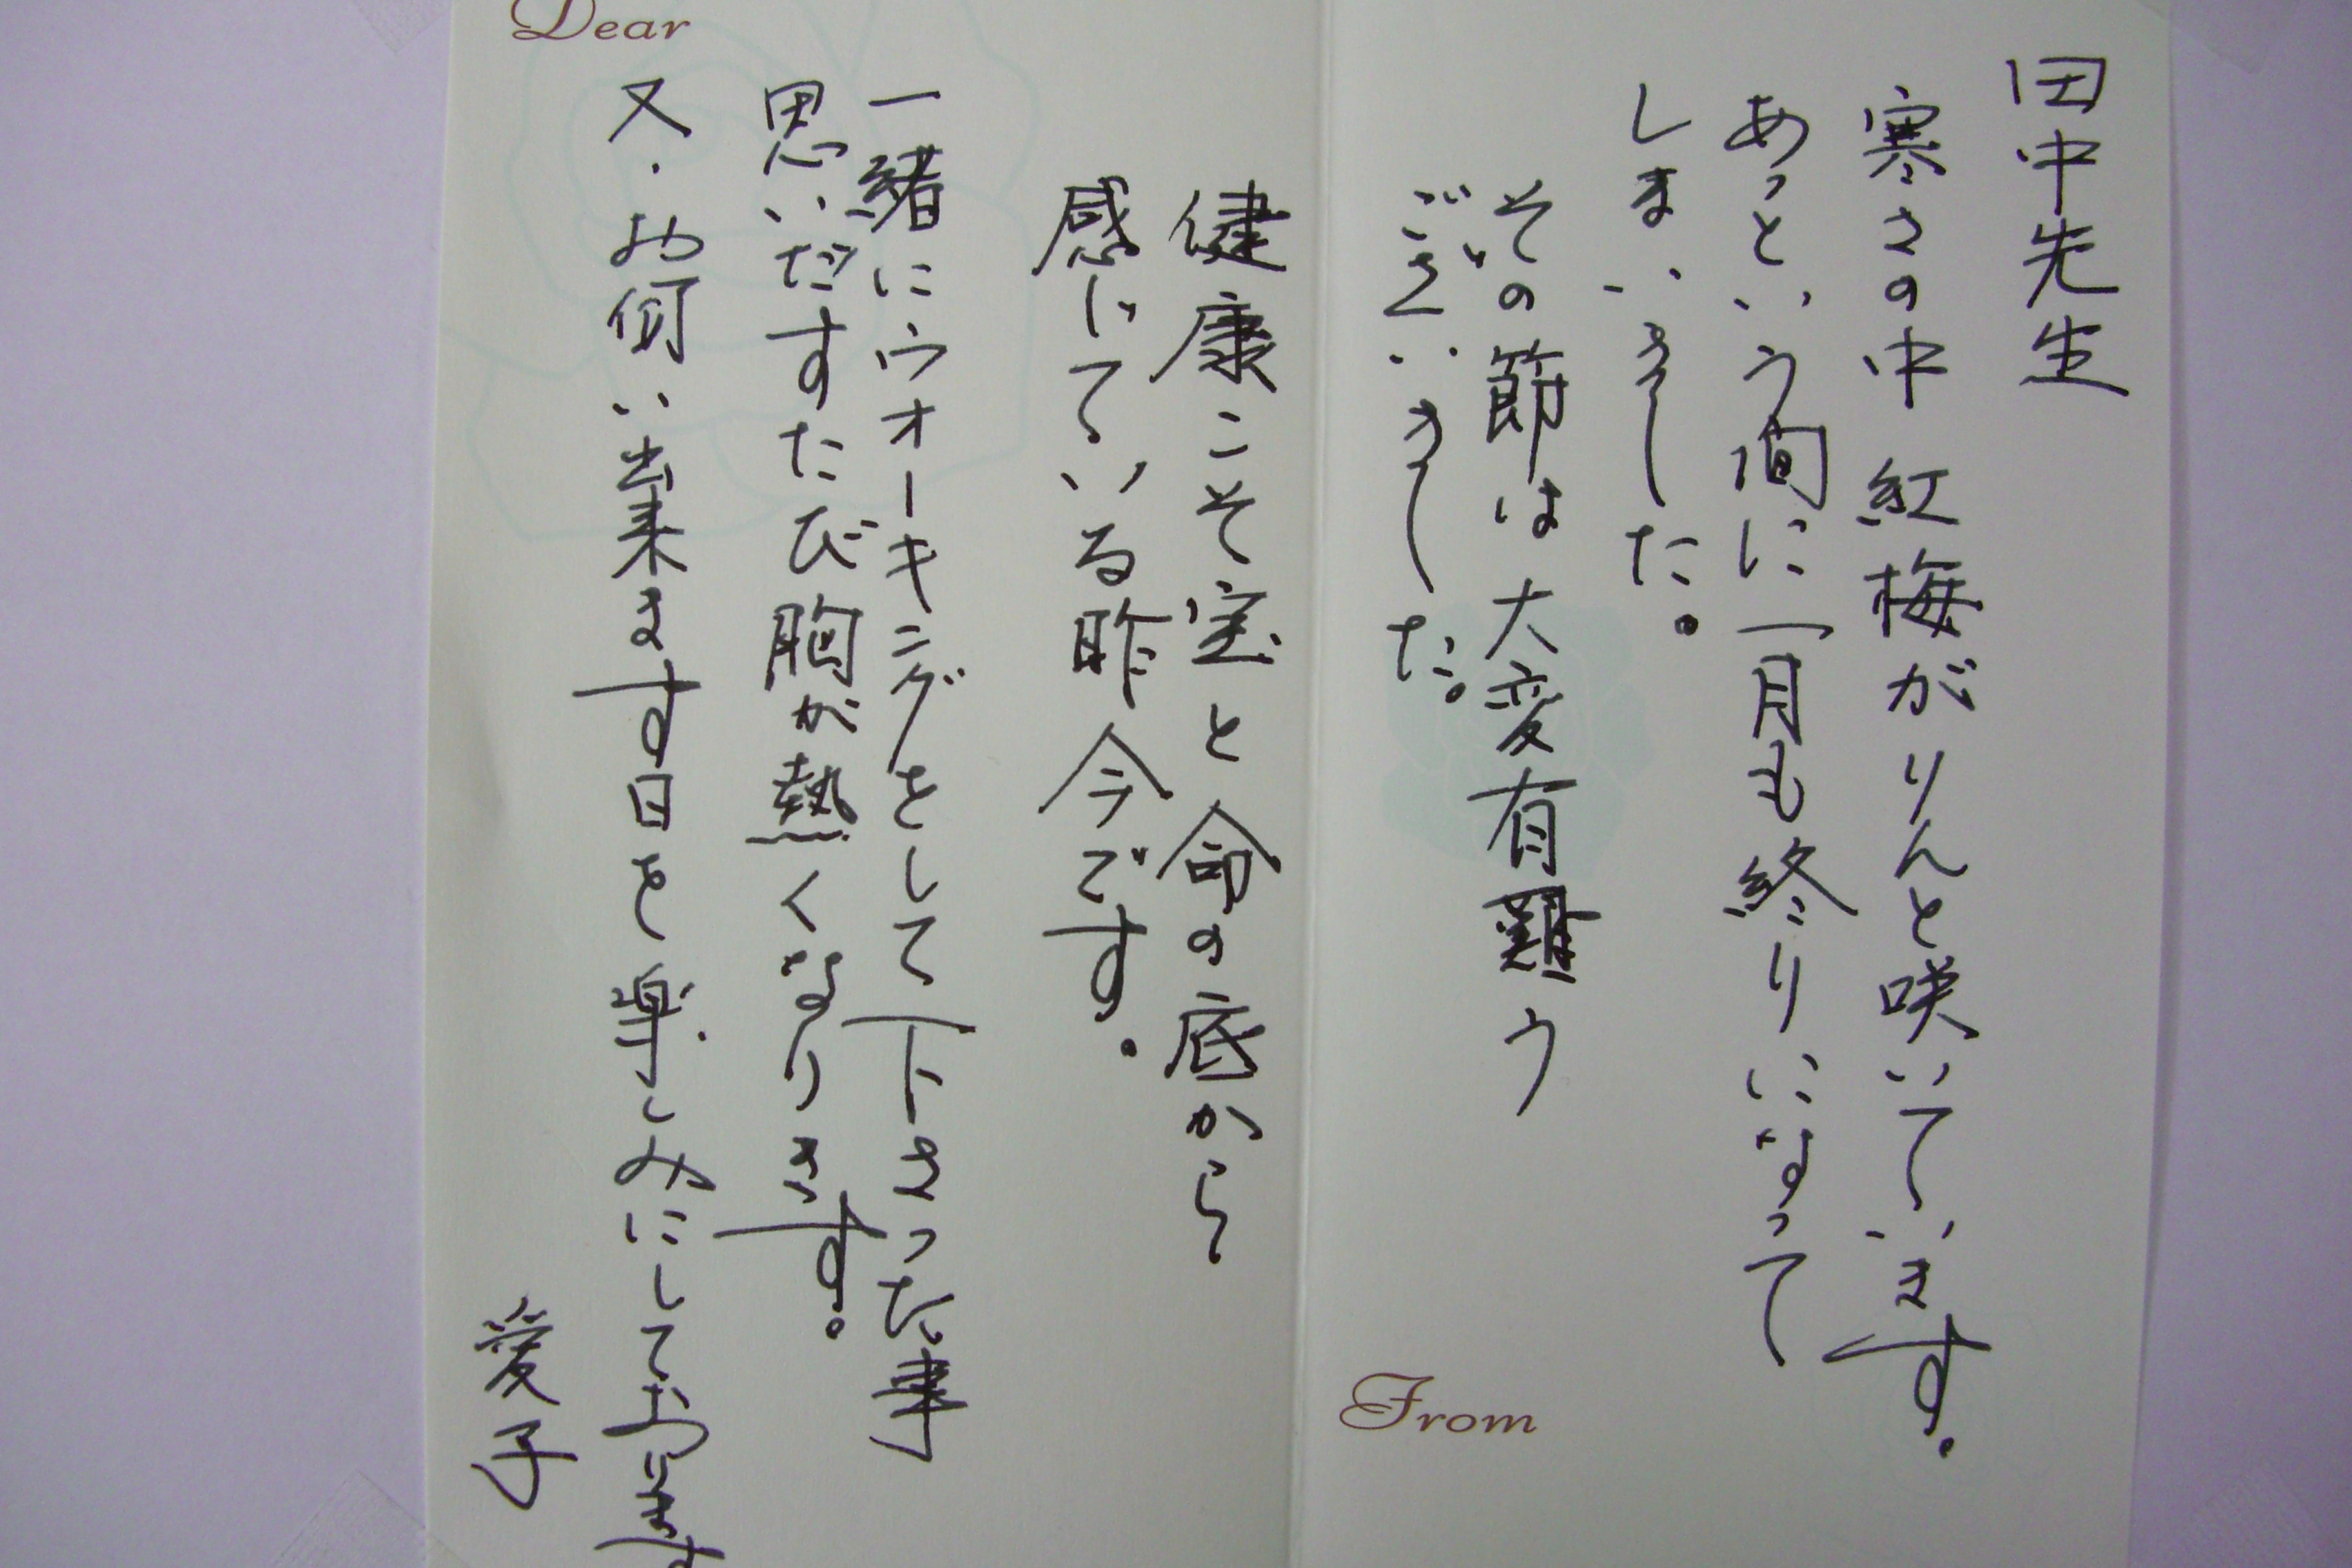 田中先生
寒さの中 紅梅がりんと咲いています。
あっという間に一月も終りになって
しまいました。
その節は大変有難う
ございました。
健康こそ宝と命の底から
感じている昨今です。
一緒にウオーキングをして下さった事
思いだすたび胸が熱くなります。
又・お伺い出来ます日を楽しみにしております
愛子
Dear
From